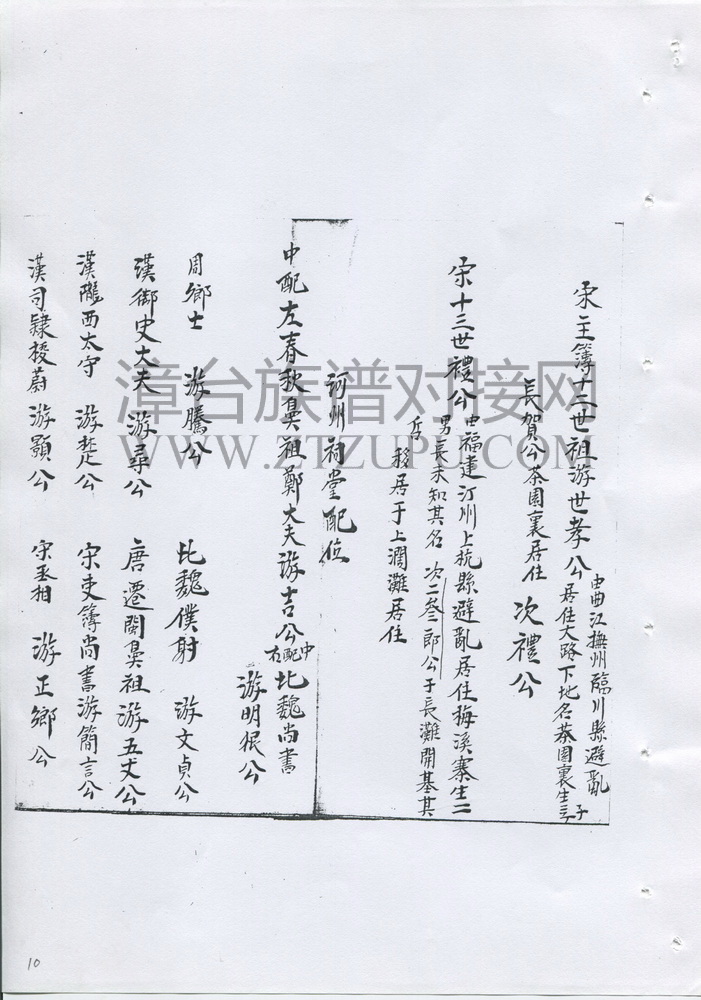 宋主簿十三世祖游世孝公 由曲江撫州臨川縣避亂
居住大路下地名茶園裏生三子
長賀公茶園裏居住 次禮公
宋十三世禮公 由福建汀州上杭縣避亂居住梅溪寨生二
男長未知其名 次二叁二郎公于長灘開基其
后移居于上澗灘居住
河州祠堂配位
中配左春秋鼻祖鄭大夫游吉公
中配右比魏尚書
游明根公
周鄉士 游騰公 比魏僕射 游文貞公
漢御史大夫 游尋公 唐遷閩鼻祖游五丈公
漢隴西太守 游楚公 宋吏簿尚書游簡言公
漢司隸援蔚 游顥公 宋丞相 游正鄉公
漳台族谱对接网
WWW.ZTZUPU.COM
10